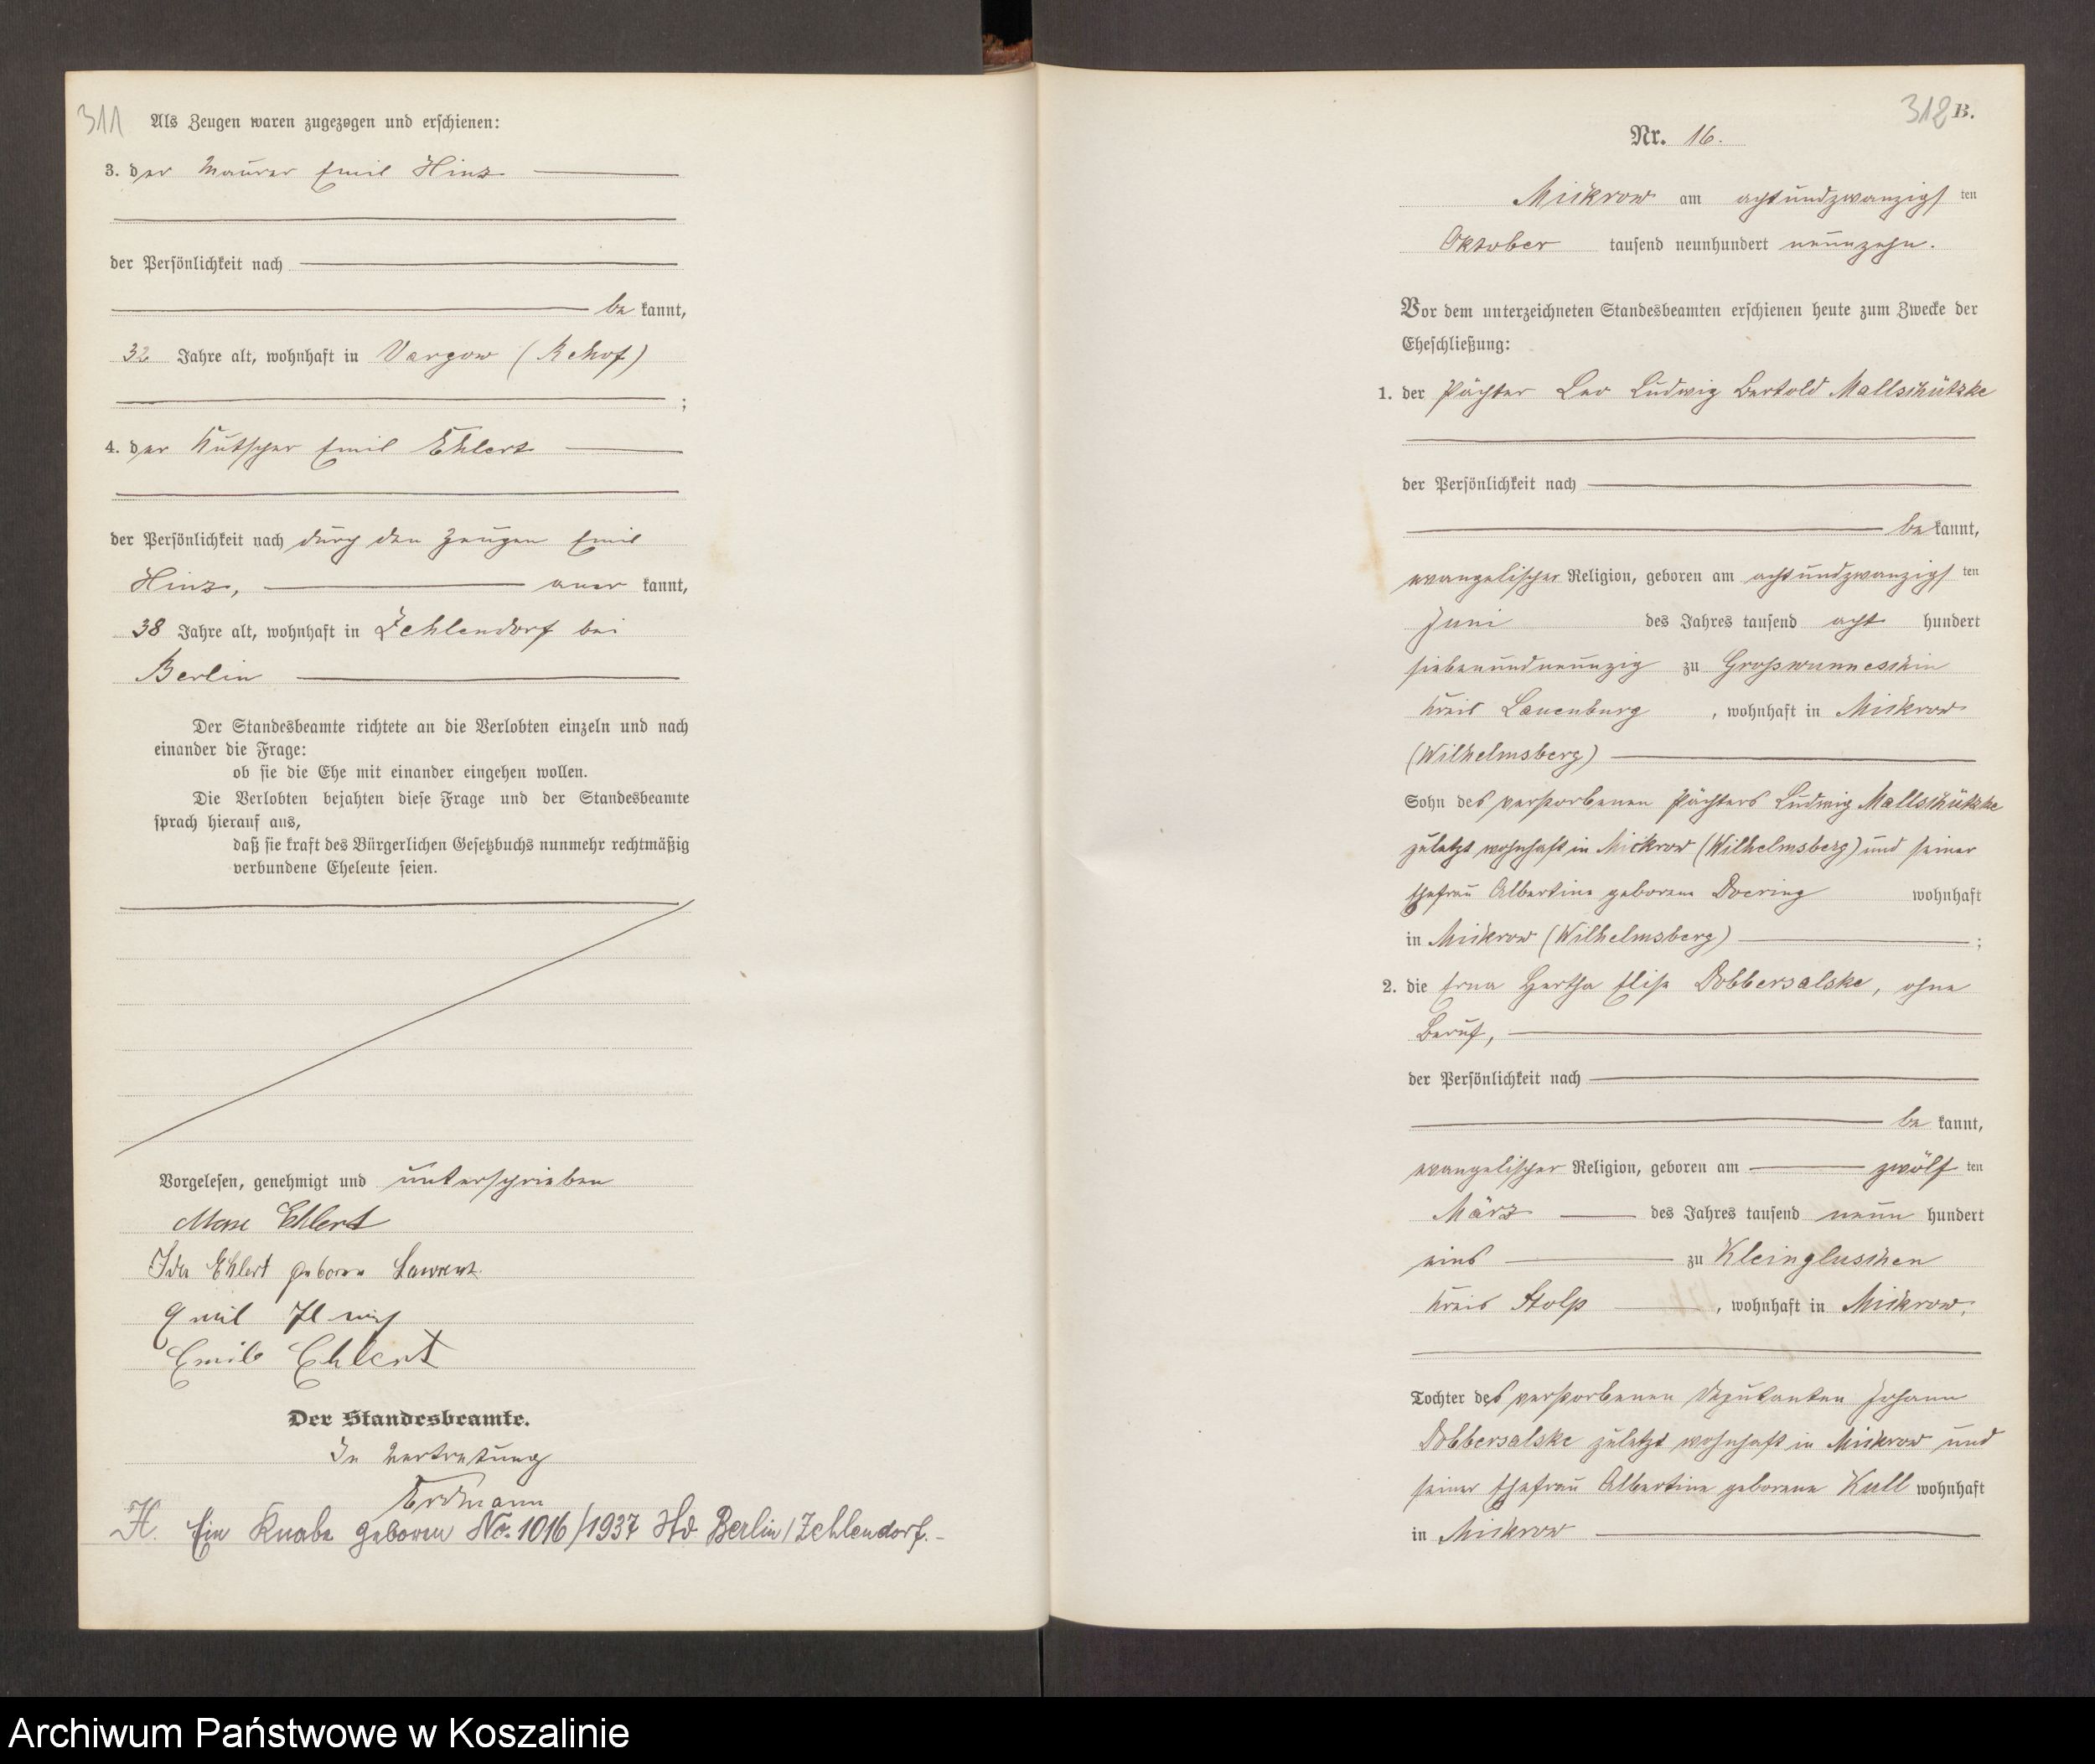 311
Als Zeugen waren zugezogen und erschienen:
3. der Maurer Emil Hinz
der Persönlichkeit nach
be kannt,
32 Jahre alt, wohnhaft in Vargow (Rehof)
;
4. der Kutscher Emil Ehlert
der Persönlichkeit nach durch den Zeugen Emil
Hinz, aner kannt,
38 Jahre alt, wohnhaft in Zehlendorf bei
Berlin
Der Standesbeamte richtete an die Verlobten einzeln und nach
einander die Frage:
ob sie die Ehe mit einander eingehen wollen.
Die Verlobten bejahten diese Frage und der Standesbeamte
sprach hierauf aus,
daß sie kraft des Bürgerlichen Gesetzbuchs nunmehr rechtmäßig
verbundene Eheleute seien.
Vorgelesen, genehmigt und unterschrieben
Ehlert
Ida Ehlert geboren
Emil
Emil Ehlert
Der Standesbeamte.
In Vertretung
Erdmann
H. Ein Knabe geboren No. 1016/1937 Berlin/Zehlendorf.-
312 B.
Nr. 16.
Mickrow am achtundzwanzigs ten
Oktober tausend neunhundert neunzehn.
Vor dem unterzeichneten Standesbeamten erschienen heute zum Zwecke der
Eheschließung:
1. der Pächter Leo Ludwig Bertold Mallschützke
der Persönlichkeit nach
be kannt,
evangelischer Religion, geboren am achtundzwanzigs ten
Juni des Jahres tausend acht hundert
siebenundneunzig zu Großwunneschin
Kreis Lauenburg, wohnhaft in Mickrow
(Wilhelmsberg)
Sohn des verstorbenen Pächters Ludwig Mallschützke
zuletzt wohnhaft in Mickrow (Wilhelmsberg) und seiner
Ehefrau Albertine geborene Doering wohnhaft
in Mickrow (Wilhelmsberg) ;
2. die Erna Hertha Elise Dobbersalske, ohne
Beruf,
der Persönlichkeit nach
be kannt,
evangelischer Religion, geboren am zwölf ten
März des Jahres tausend neun hundert
eins zu Kleingluschen
Kreis Stolp, wohnhaft in Mickrow,
Tochter des verstorbenen Deputanten Johann
Dobbersalske zuletzt wohnhaft in Mickrow und
seiner Ehefrau Albertine geborene Kull wohnhaft
in Mickrow
Archiwum Państwowe w Koszalinie